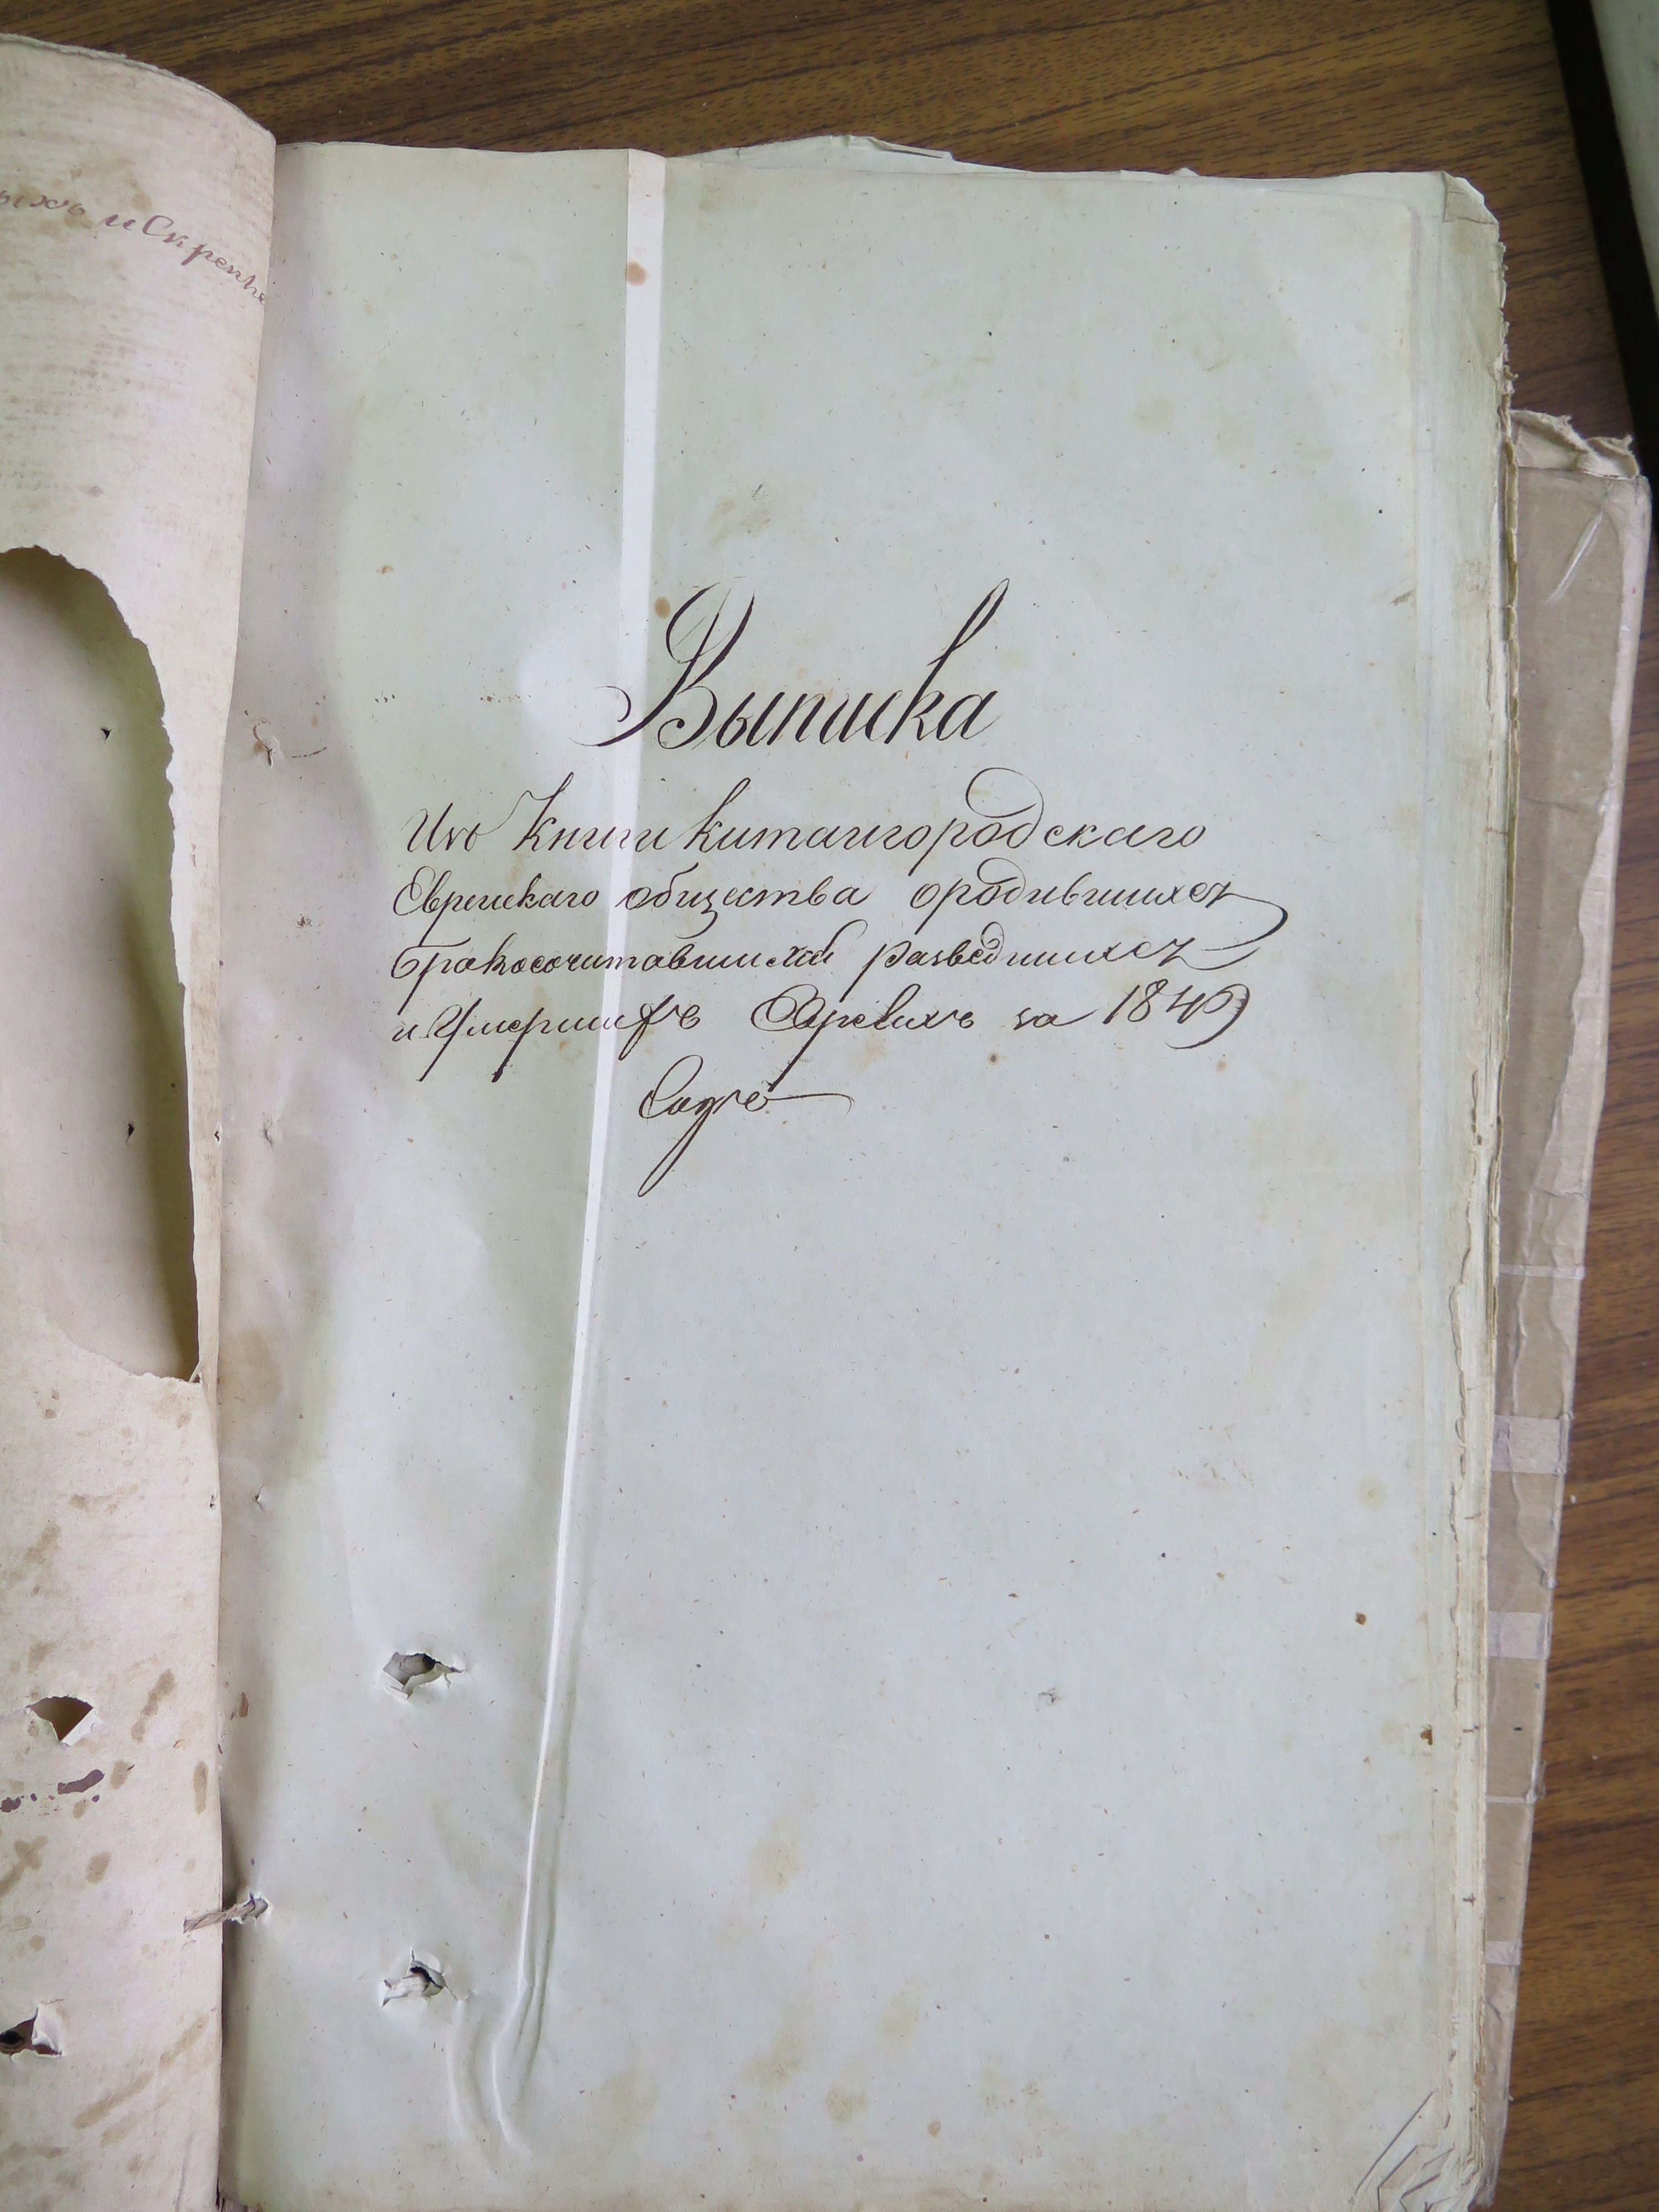 ыхъ и Скрепле
Выписка
Изъ книги китаигородскаго
Евреискаго общества ородившихся
бракосочитавшихся разведшихся
и Умершихъ Евреевъ за 1849
Годъ